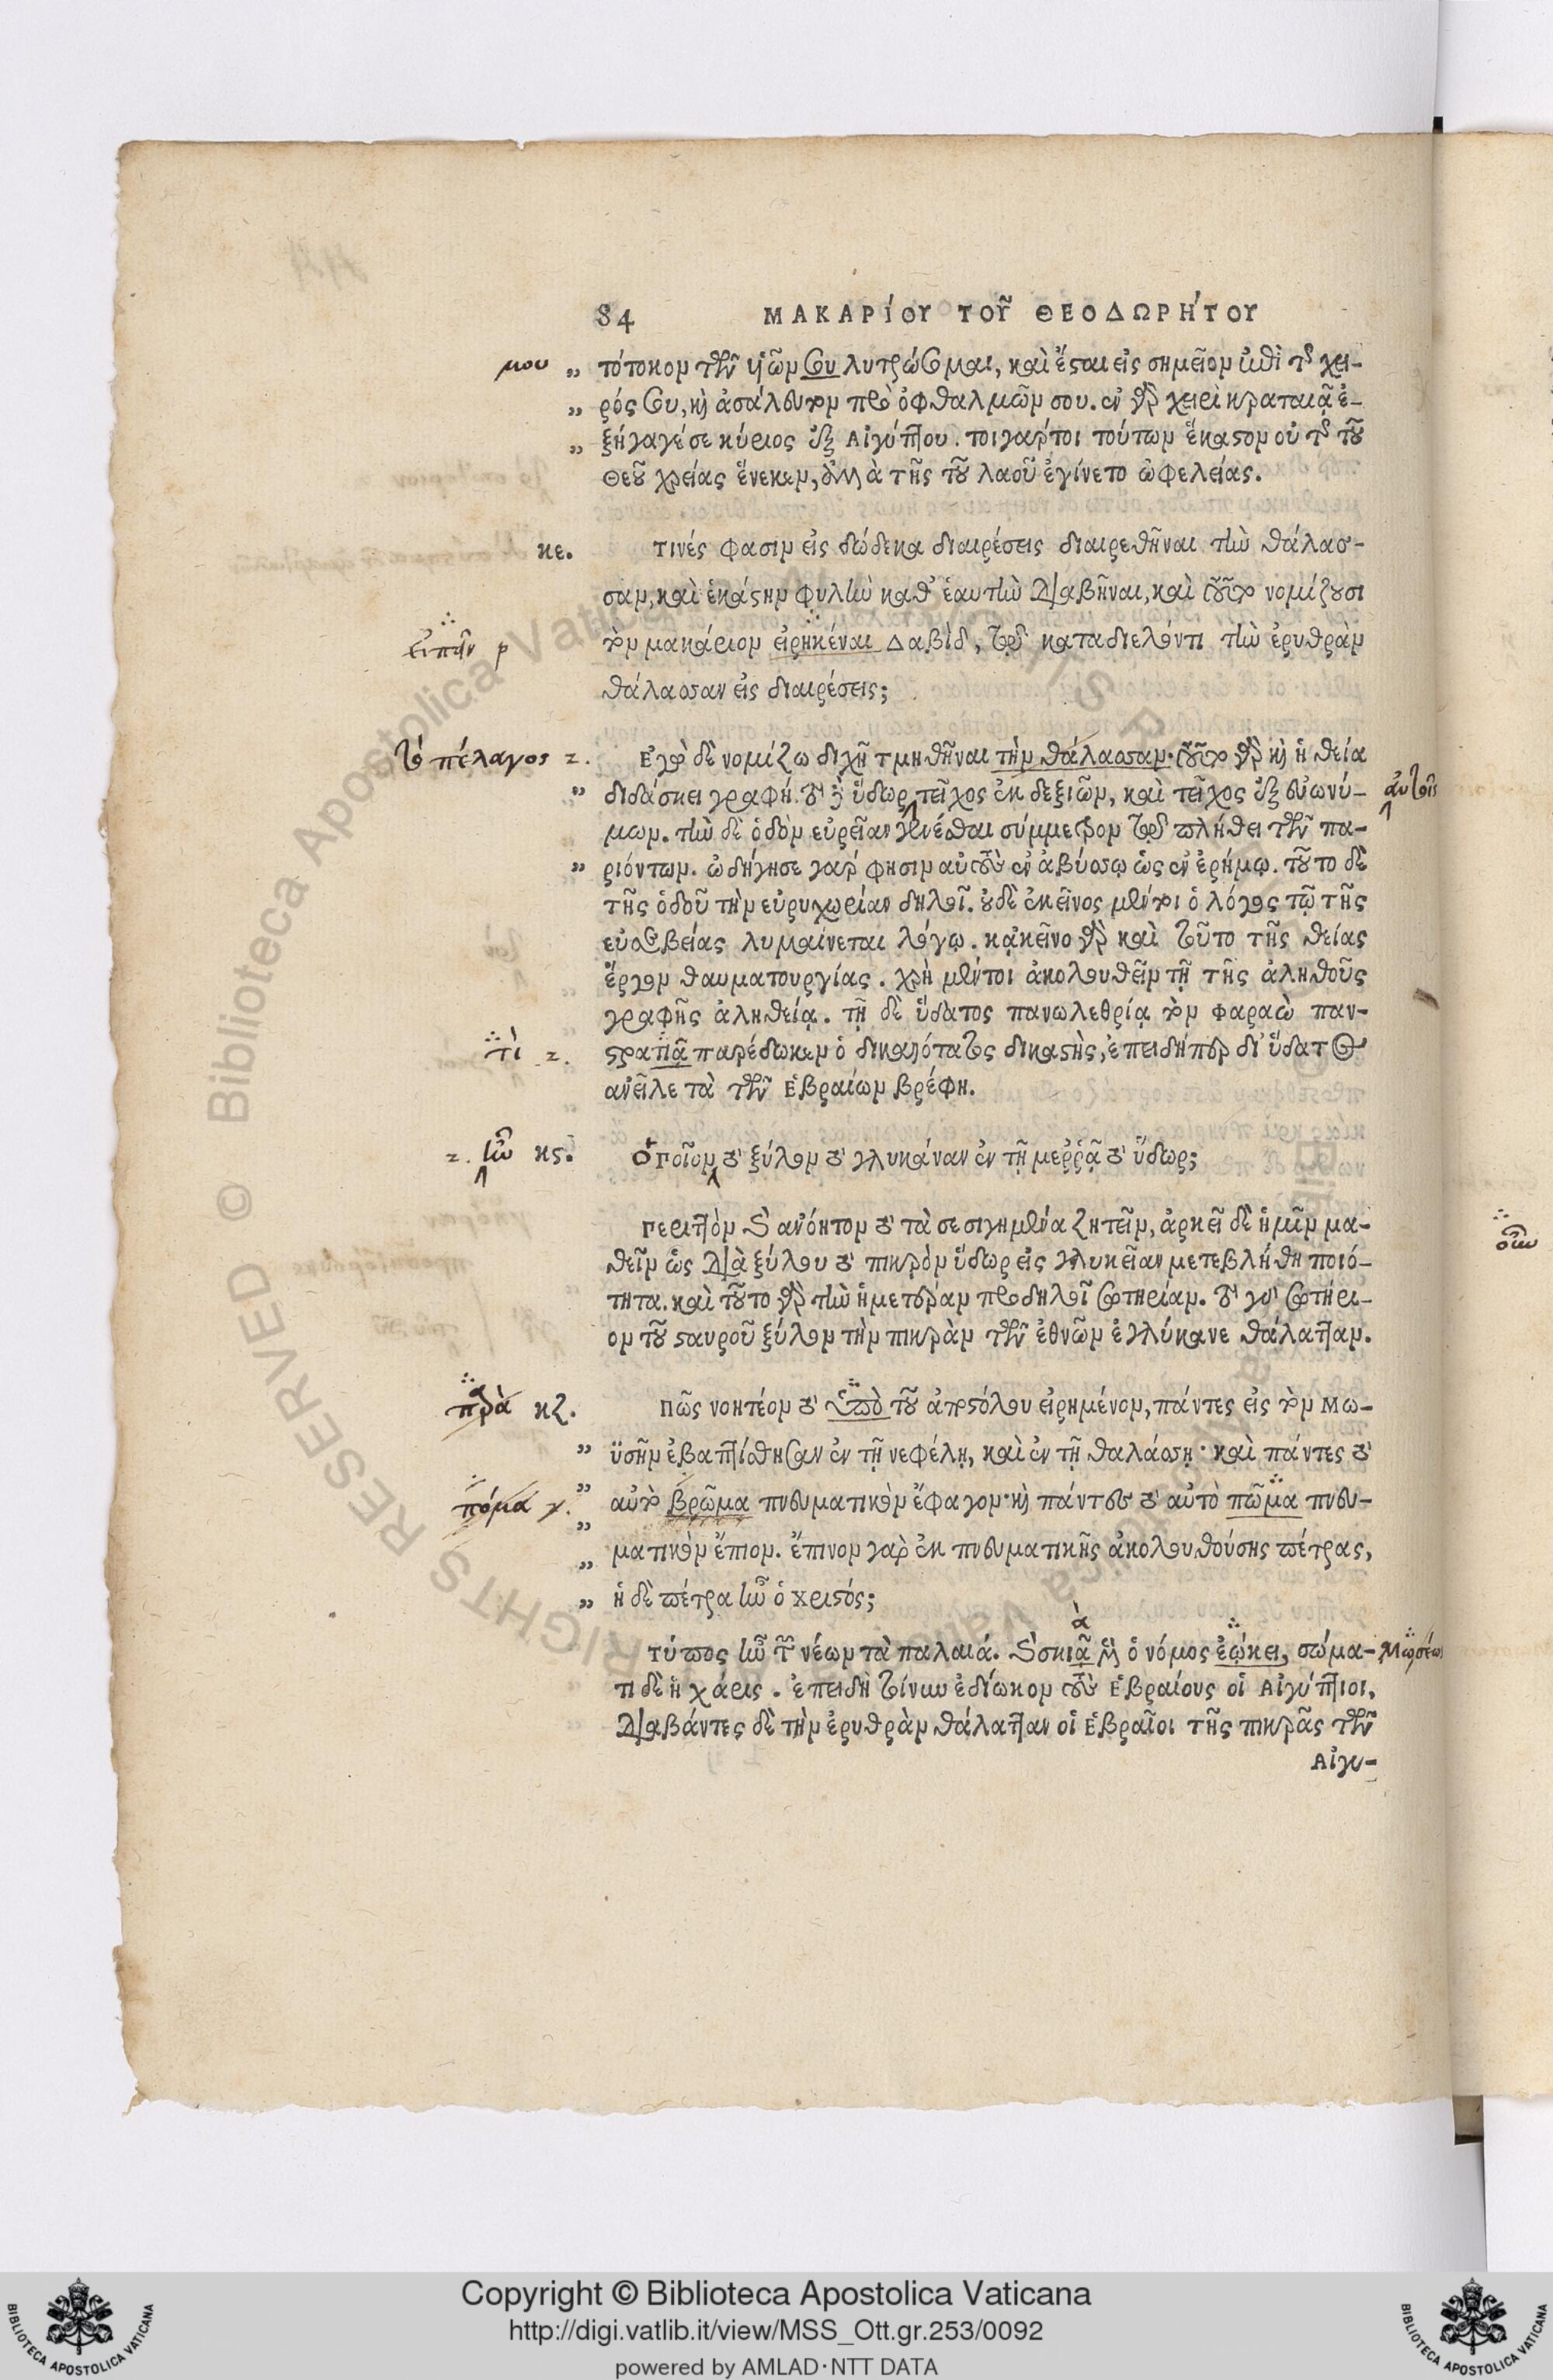 84 ΜΑΚΑΡΙΟΥ ΤΟΥ͂ ΘΕΟΔΩΡΉΤΟΥ
μου „ τότοκον τῶν υἱῶν σου λυτρώσομαι, καὶ ἔσται εἰς σημεῖον ἐπὶ τῆς χει-
„ ρός σου, καὶ ἀσάλευτον πρὸ ὀφθαλμῶν σου. ἐν γὰρ χειρὶ κραταιᾷ ἐ-
„ ξήγαγέ σε κύριος ἐξ Αἰγύπτου. τοιγάρτοι τούτων ἕκαστον οὐ τῆς τοῦ
Θεοῦ χρείας ἕνεκεν, ἀλλὰ τῆς τοῦ λαοῦ ἐγίνετο ὠφελείας.
κε. Τινές φασιν εἰς δώδεκα διαιρέσεις διαιρεθῆναι τὴν θάλασ-
σαν, καὶ ἑκάστην φυλὴν καθ' ἑαυτὴν διαβῆναι, καὶ τοῦτο νομίζουσι
εἰπεῖν ρ τὸν μακάριον εἰρηκέναι Δαβὶδ, τῷ καταδιελόντι τὴν ἐρυθρὰν
θάλασσαν εἰς διαιρέσεις;
τὸ πέλαγος 2. Ἐγὼ δὲ νομίζω διχῆ τμηθῆναι τὴν θάλασσαν· τοῦτο γὰρ καὶ ἡ θεία
„ διδάσκει γραφή. τὸ γὰρ ὕδωρ τεῖχος ἐκ δεξιῶν, καὶ τεῖχος ἐξ εὐωνύ- αὐτοῖς
μων. τὴν δὲ ὁδὸν εὐρεῖαν γενέσθαι σύμμετρον τῷ πλήθει τῶν πα-
„ ριόντων. ὡδήγησε γάρ φησιν αὐτοὺς ἐν ἀβύσσῳ ὡς ἐν ἐρήμῳ. τοῦτο δὲ
τῆς ὁδοῦ τὴν εὐρυχωρίαν δηλοῖ. οὐδὲ ἐκεῖνος μέντοι ὁ λόγος τῷ τῆς
εὐσεβείας λυμαίνεται λόγῳ. κἀκεῖνο γὰρ καὶ τοῦτο τῆς θείας
ἔργον θαυματουργίας. χρὴ μέντοι ἀκολουθεῖν τῇ τῆς ἀληθοῦς
γραφῆς ἀληθείᾳ. τῇ δὲ ὕδατος πανωλεθρίᾳ τὸν Φαραὼ παν-
τὶ 2. στρατιᾷ παρέδωκεν ὁ δικαιότατος δικαστὴς, ἐπειδήπερ δι' ὕδατος
ἀνεῖλε τὰ τῶν Ἑβραίων βρέφη.
2. ἦν κϛ. Ὁποῖον τὸ ξύλον τὸ γλυκάναν ἐν τῇ μεῤῥᾷ τὸ ὕδωρ;
Περιττὸν καὶ ἀνόητον τὸ τὰ σεσιγημένα ζητεῖν, ἀρκεῖ δὲ ἡμῖν μα-
θεῖν ὡς διὰ ξύλου τὸ πικρὸν ὕδωρ εἰς γλυκεῖαν μετεβλήθη ποιό-
τητα. καὶ τοῦτο γὰρ τὴν ἡμετέραν προδηλοῖ σωτηρίαν. τὸ γὰρ σωτήρι-
ον τοῦ σταυροῦ ξύλον τὴν πικρὰν τῶν ἐθνῶν ἐγλύκανε θάλατταν.
παρὰ κζ. Πῶς νοητέον τὸ ὑπὸ τοῦ ἀποστόλου εἰρημένον, πάντες εἰς τὸν Μω-
„ ϋσῆν ἐβαπτίσθησαν ἐν τῇ νεφέλῃ, καὶ ἐν τῇ θαλάσσῃ· καὶ πάντες τὸ
πόμα γ. „ αὐτὸ βρῶμα πνευματικὸν ἔφαγον· καὶ πάντες τὸ αὐτὸ πῶμα πνευ-
„ ματικὸν ἔπιον. ἔπινον γὰρ ἐκ πνευματικῆς ἀκολουθούσης πέτρας,
„ ἡ δὲ πέτρα ἦν ὁ χριστός;
Τύπος ἦν τῶν νέων τὰ παλαιά. καὶ σκιᾷ μὲν ὁ νόμος ἐῴκει, σώμα- Μωσέως
τι δὲ ἡ χάρις. ἐπειδὴ τοίνυν ἐδίωκον τοὺς Ἑβραίους οἱ Αἰγύπτιοι,
διαβάντες δὲ τὴν ἐρυθρὰν θάλατταν οἱ Ἑβραῖοι τῆς πικρᾶς τῶν
Αἰγυ-
Copyright © Biblioteca Apostolica Vaticana
http://digi.vatlib.it/view/MSS_Ott.gr.253/0092
powered by AMLAD·NTT DATA